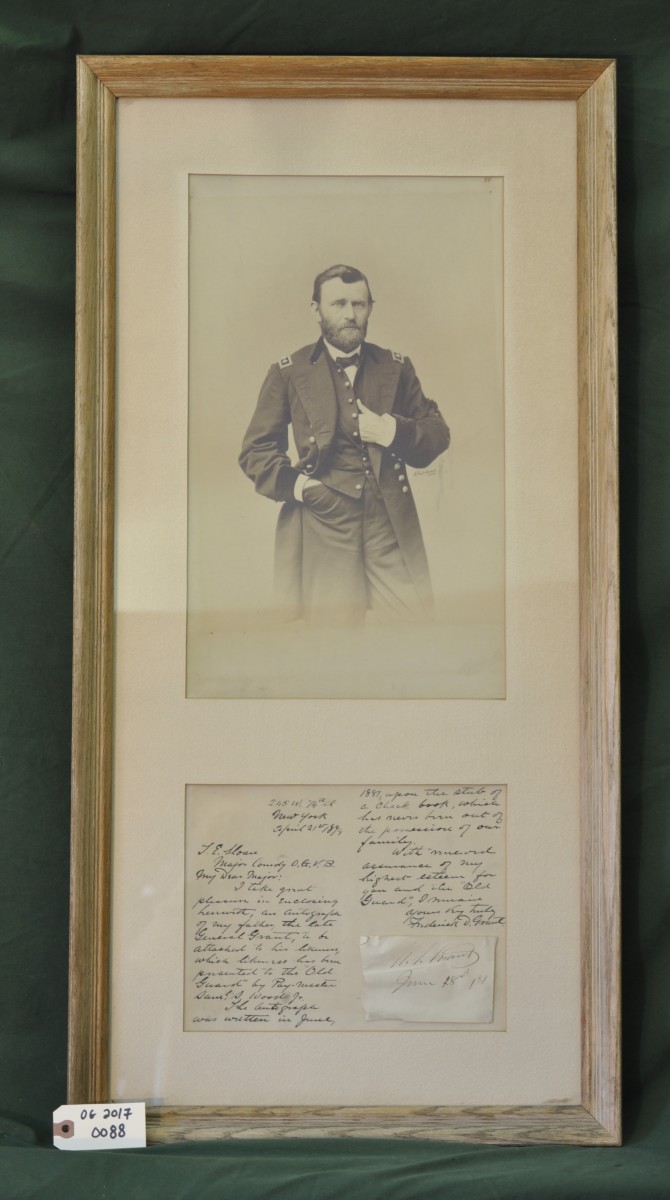 New York
April 21st 189
T. E. Sloan
Major Comdg O.G.V.B.
My Dear Major:
I take great
pleasure in enclosing
herewith, an autograph
of my father, the late
General Grant, to be
attached to his likeness,
which likeness has been
presented to the "Old
Guard" by Pay-master
Saml. S. Wood Jr.
The autograph
was written in June,
1881, upon the stub of
a check book, which
has never been out of
the possession of our
family.
With renewed
assurance of my
highest esteem for
you and the "Old
Guard", I remain
yours very truly
Frederick D. Grant
U. S. Grant
June 28d 181
OG 2017
0088